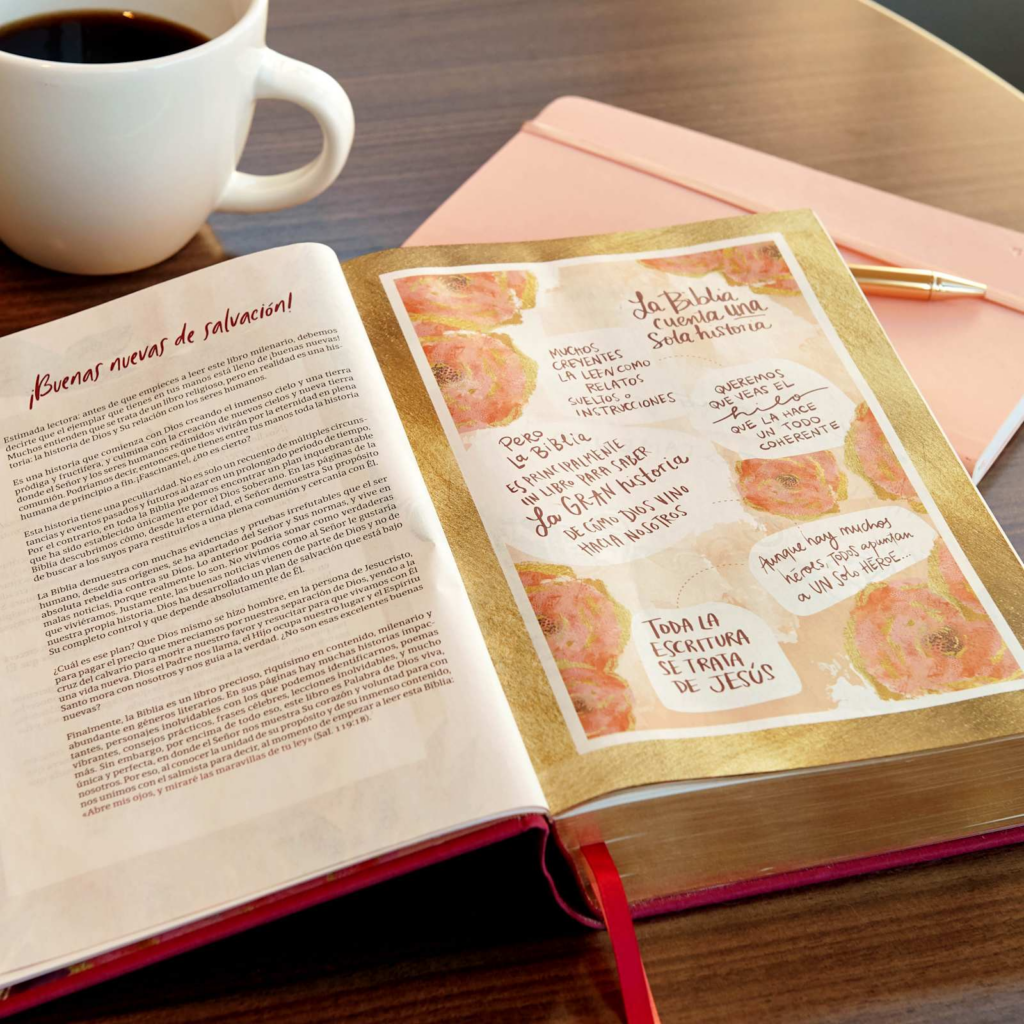 ¡Buenas nuevas de salvación!
Estimada lectora: antes de que empieces a leer este libro milenario, debemos
decirte que el ejemplar que tienes en tus manos está lleno de ¡buenas nuevas!
Muchos entienden que se trata de un libro religioso, pero en realidad es una his-
toria: la historia de Dios y Su relación con los seres humanos.
Es una historia que comienza con Dios creando el inmenso cielo y una tierra
pródiga y fructífera, y culmina con la creación de nuevos cielos y nueva tierra
donde el Señor y los seres humanos redimidos vivirán por la eternidad en plena
comunión. Podríamos decir, entonces, que tienes entre tus manos toda la historia
humana de principio a fin. ¡Fascinante!, ¿no es cierto?
Esta historia tiene una peculiaridad. No es solo un recuento de múltiples circuns-
tancias y eventos pasados y futuros al azar en un prolongado periodo de tiempo.
Por el contrario, en toda la Biblia podemos encontrar un plan inquebrantable
que ha sido establecido únicamente por el Dios Soberano. En las páginas de la
Biblia descubrimos cómo, desde la eternidad, el Señor demuestra Su propósito
de buscar a los suyos para restituirlos a una plena comunión y cercanía con Él.
La Biblia demuestra con muchas evidencias y pruebas irrefutables que el ser
humano, desde sus orígenes, se ha apartado del Señor y Sus normas, y vive en
absoluta rebeldía contra su Dios. Lo anterior podría sonar como verdaderas
malas noticias, porque realmente lo son. No vivimos como al Señor le gustaría
que viviéramos. Justamente, las buenas noticias vienen de parte de Dios y no de
nuestra propia historia. Dios ha desarrollado un plan de salvación que está bajo
Su completo control y que depende absolutamente de Él.
¿Cuál es ese plan? Que Dios mismo se hizo hombre, en la persona de Jesucristo,
para pagar el precio que merecíamos por nuestra separación de Dios, yendo a la
cruz del calvario para morir a nuestro favor y resucitar para que vivamos con Él
una vida nueva. Dios el Padre nos llama, el Hijo ocupa nuestro lugar y el Espíritu
Santo mora con nosotros y nos guía a la verdad. ¿No son esas excelentes buenas
nuevas?
Finalmente, la Biblia es un libro precioso, riquísimo en contenido, milenario y
abundante en géneros literarios. En sus páginas hay muchas historias impac-
tantes, personajes inolvidables con los que podemos identificarnos, poemas
vibrantes, consejos prácticos, frases célebres, lecciones inolvidables, y mucho
más. Sin embargo, por encima de todo eso, este libro es Palabra de Dios viva,
única y perfecta, en donde el Señor nos muestra Su corazón y voluntad para con
nosotros. Por eso, al conocer la unidad de su propósito y de su inmenso contenido,
nos unimos con el salmista para decir, al momento de empezar a leer esta Biblia:
«Abre mis ojos, y miraré las maravillas de tu ley» (Sal. 119:18).
La Biblia
cuenta una
Sola historia
MUCHOS
CREYENTES
LA LEEN COMO
RELATOS
SUELTOS o
INSTRUCCIONES
QUEREMOS
QUE VEAS EL
hilo
QUE LA HACE
UN TODO
COHERENTE
PERO
LA BIBLIA
ES PRINCIPALMENTE
UN LIBRO PARA SABER
La GRAN historia
DE CÓMO DIOS VINO
HACIA NOSOTROS
Aunque hay muchos
héroes, TODOS apuntan
a UN Solo HÉROE...
TODA LA
ESCRITURA
SE TRATA
DE JESÚS